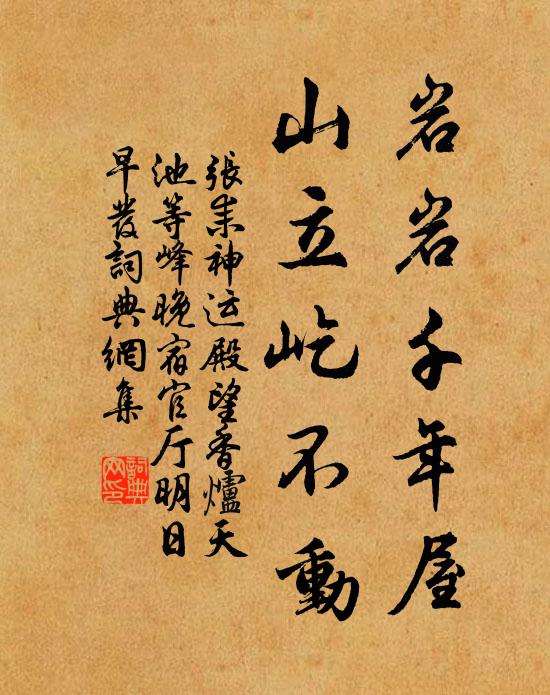 岩岩千年屋
山立屹不動
張耒神运殿望香爐天
池等峰晚宿官厅明日
早發詞典網集
詞典网印